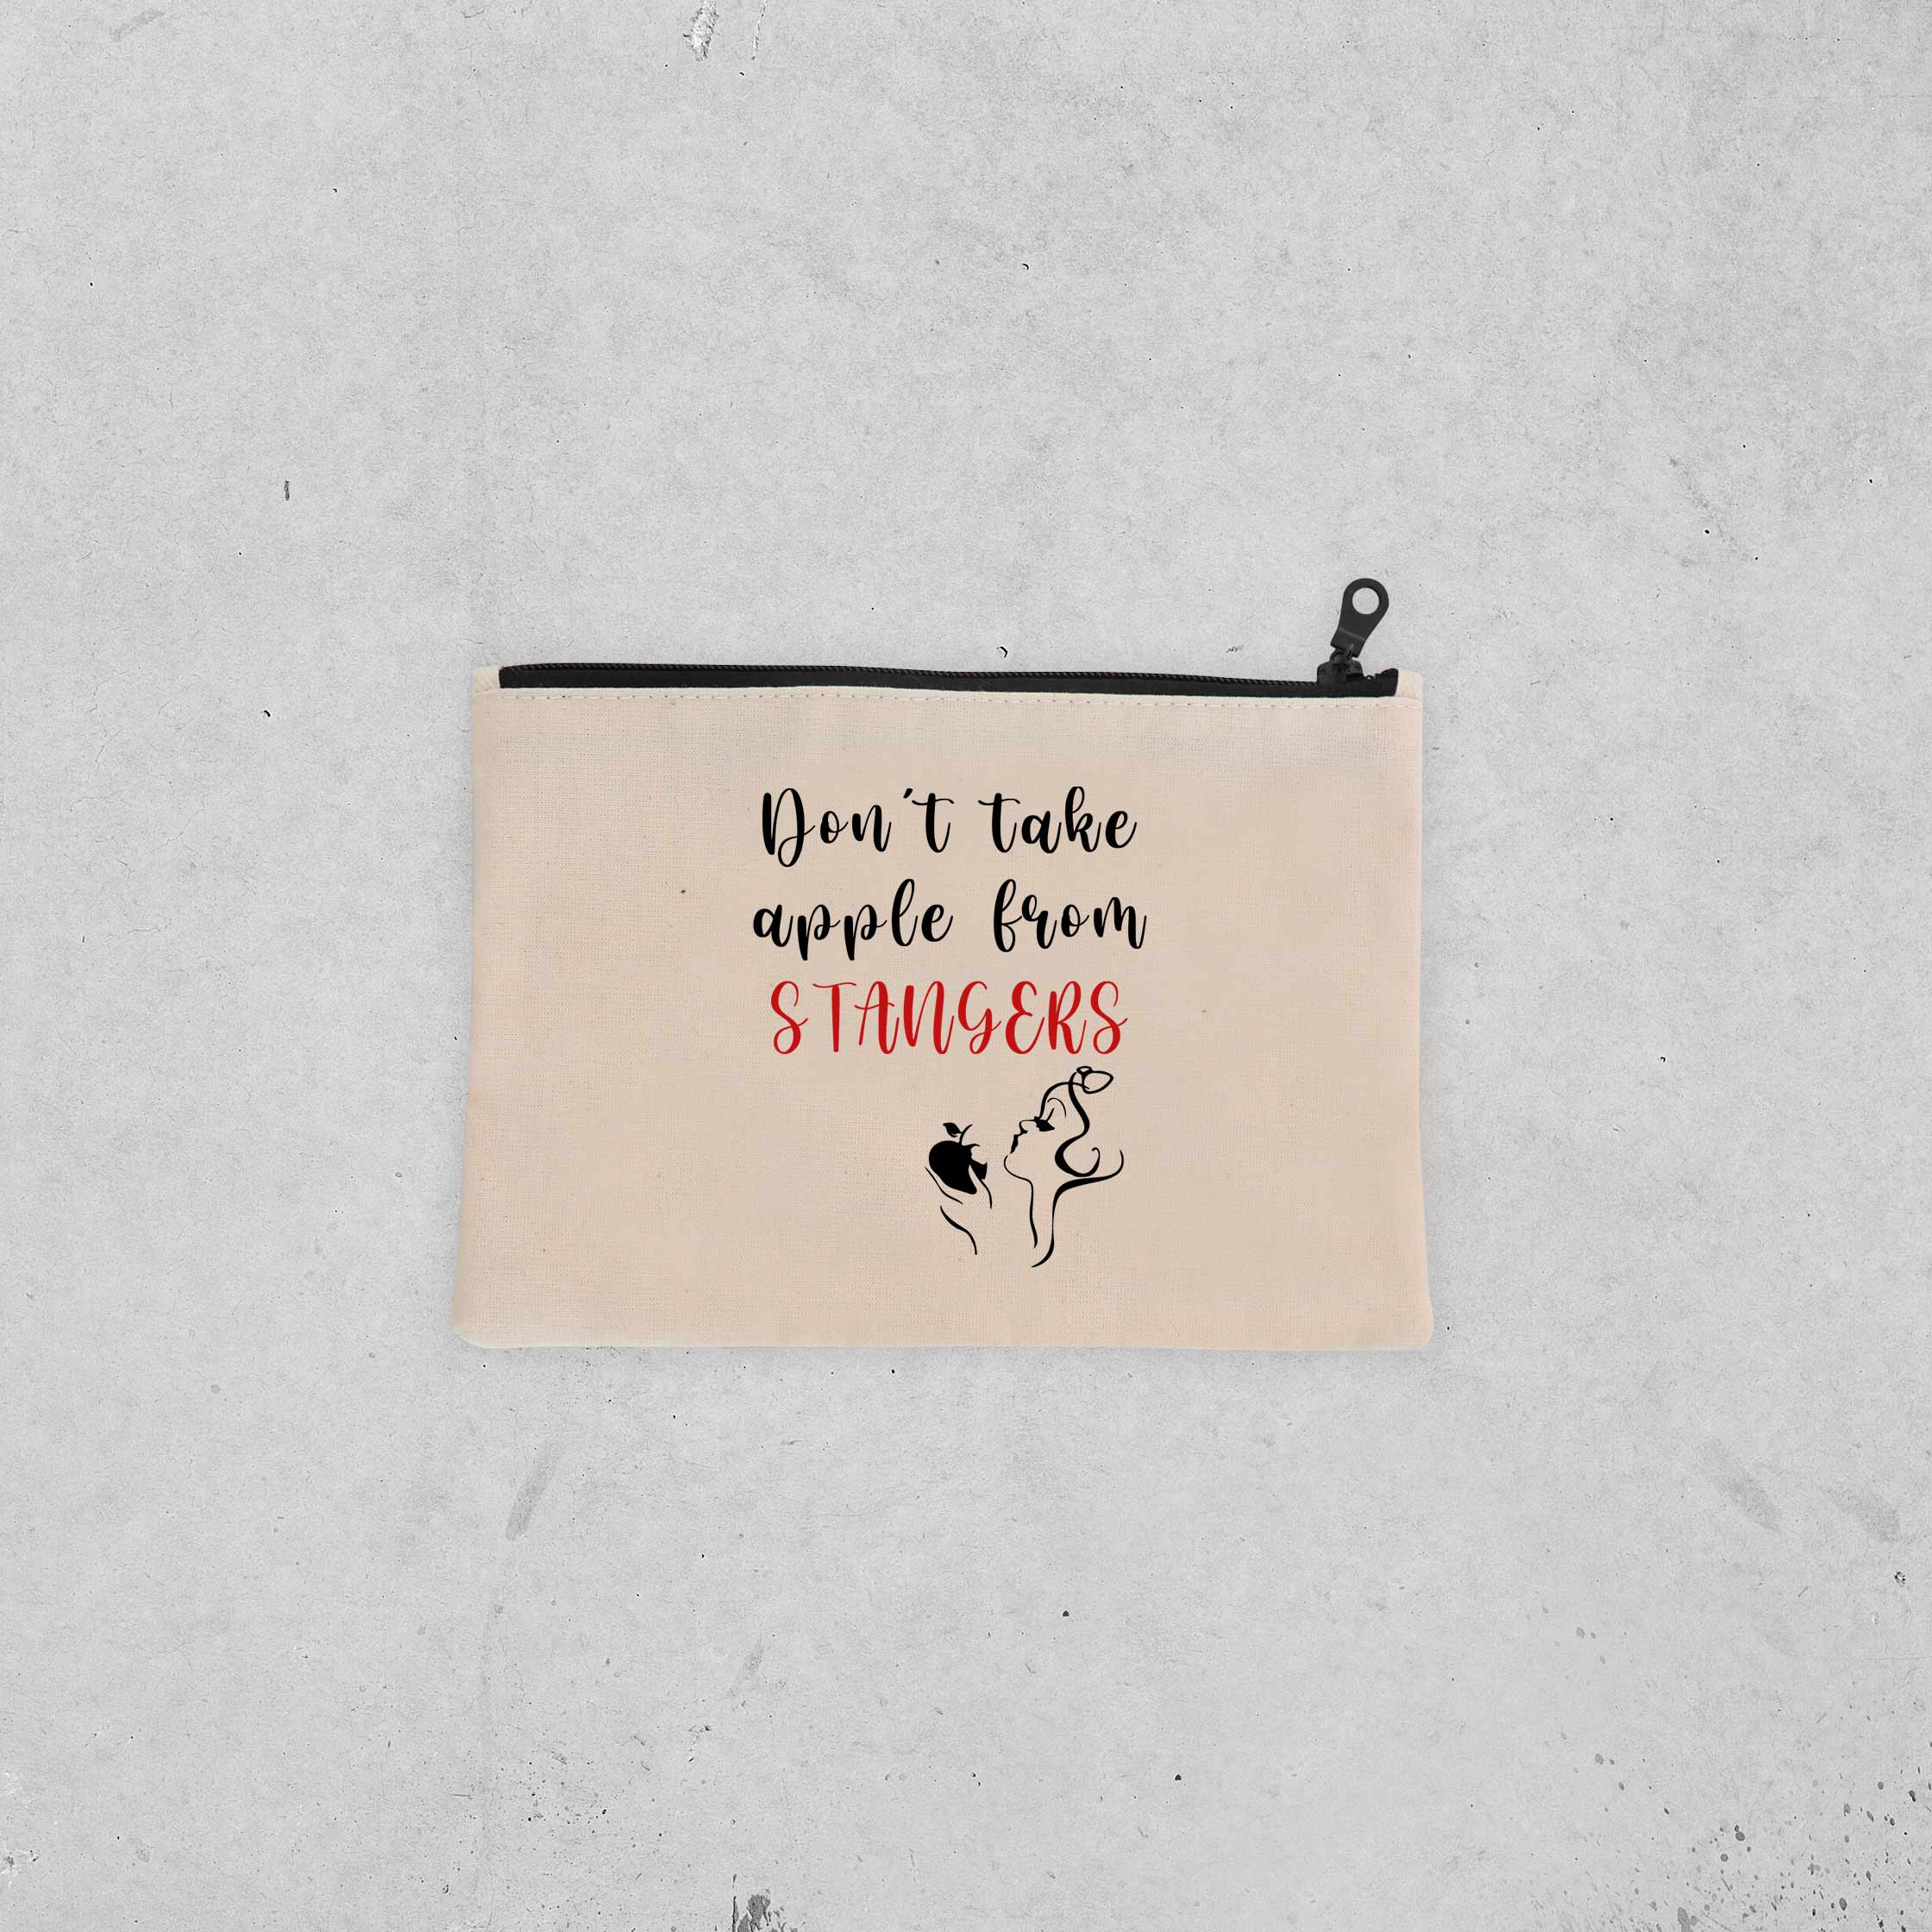 Don´t take
apple from
STANGERS